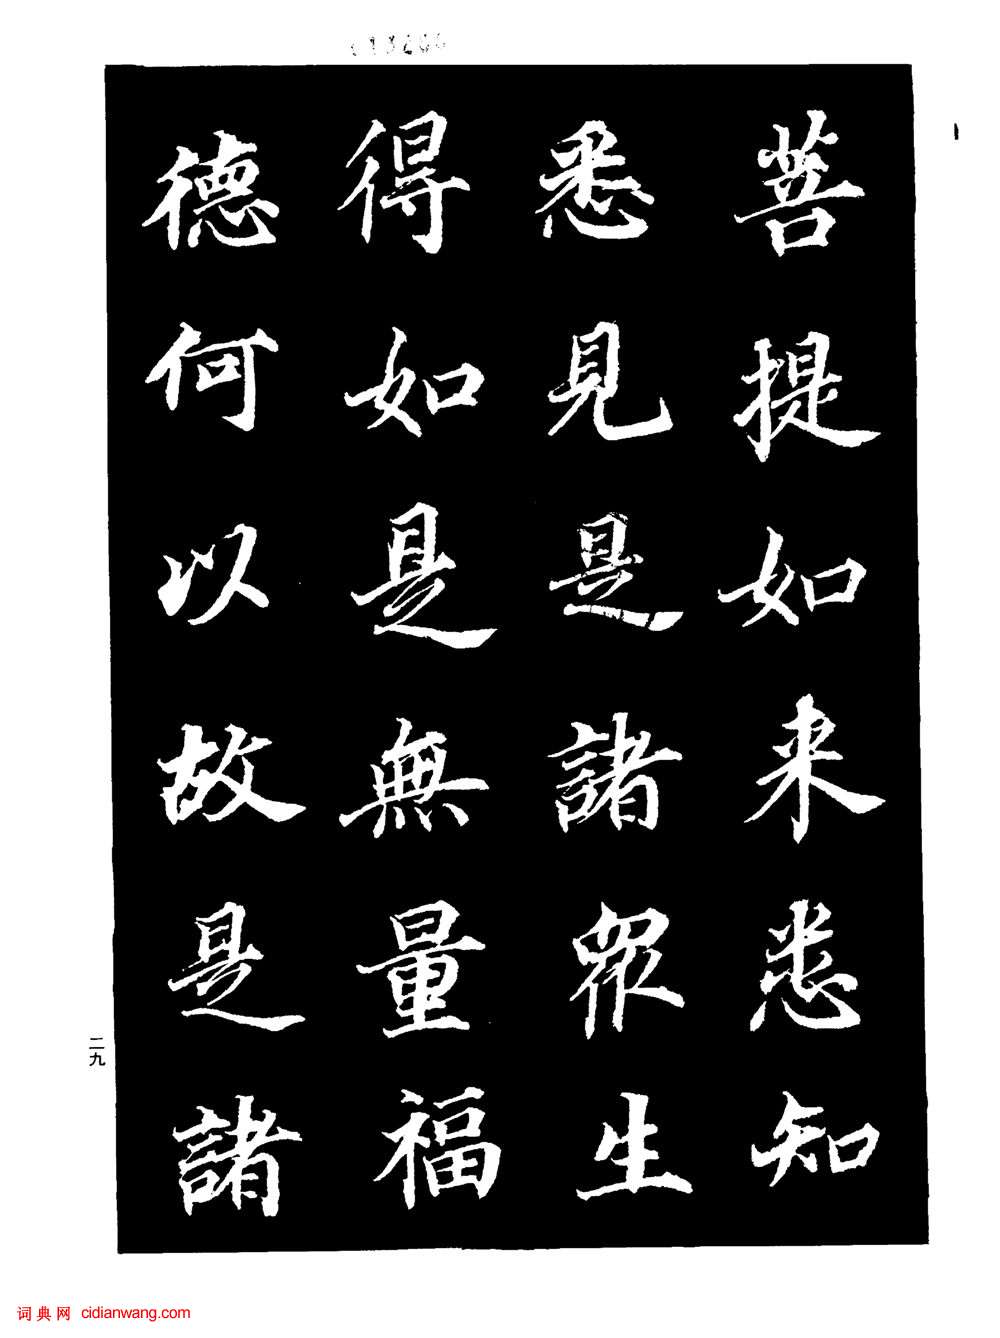 菩提如来悉知
悉見是諸眾生
得如是無量福
德何以故是諸
二九
词典网 cidianwang.com